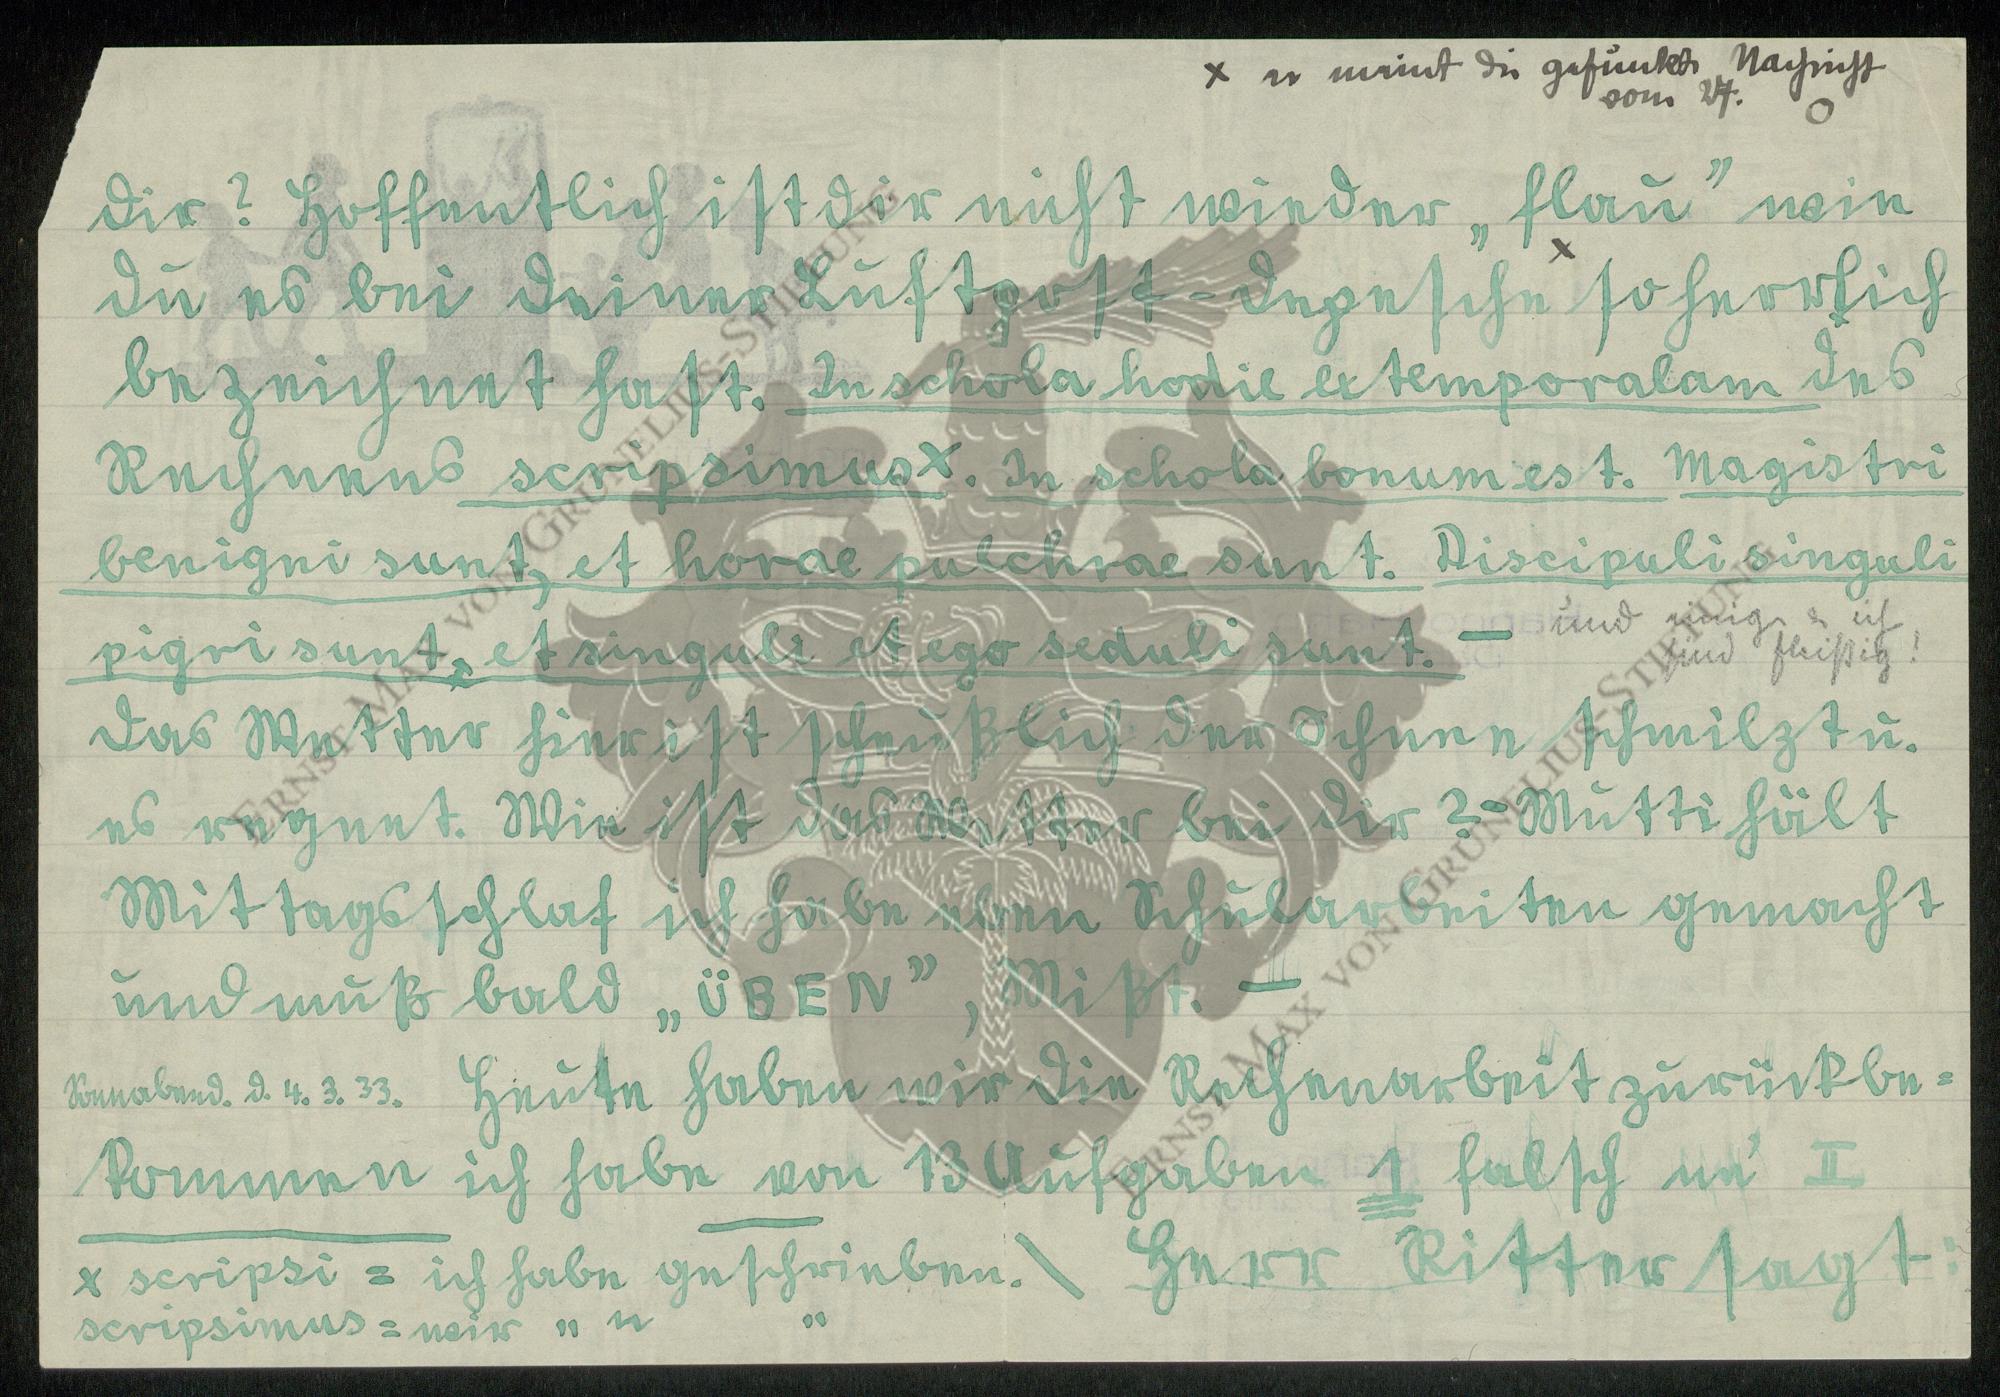 x er meint die gefunkte Nachricht
vom 27.
dir? Hoffentlich ist dir nicht wieder „flau" wie
du es bei deiner Luftpost-depesche x so herrlich
bezeichnet hast. In schola hodie extemporalam des
Rechnens scripsimus x. In schola bonum est. Magistri
benigni sunt, et horae pulchrae sunt. Discipuli singuli
pigri sunt, et singuli et ego seduli sunt. — und einige & ich
sind fleißig!
das Wetter hier ist scheußlich der Schnee schmilzt u.
es regnet. Wie ist das Wetter bei dir? - Mutti hält
Mittagsschlaf ich habe eben Schularbeiten gemacht
und muß bald „ÜBEN", Mißt. —
Sonnabend. d. 4. 3. 33. Heute haben wir die Rechenarbeit zurückbe=
kommen ich habe von 13 Aufgaben 1 falsch ne' II
x scripsi = ich habe geschrieben. \ Herr Ritter sagt:
scripsimus = wir " " "
ERNST MAX VON GRUNELIUS-STIFTUNG
ERNST MAX VON GRUNELIUS-STIFTUNG